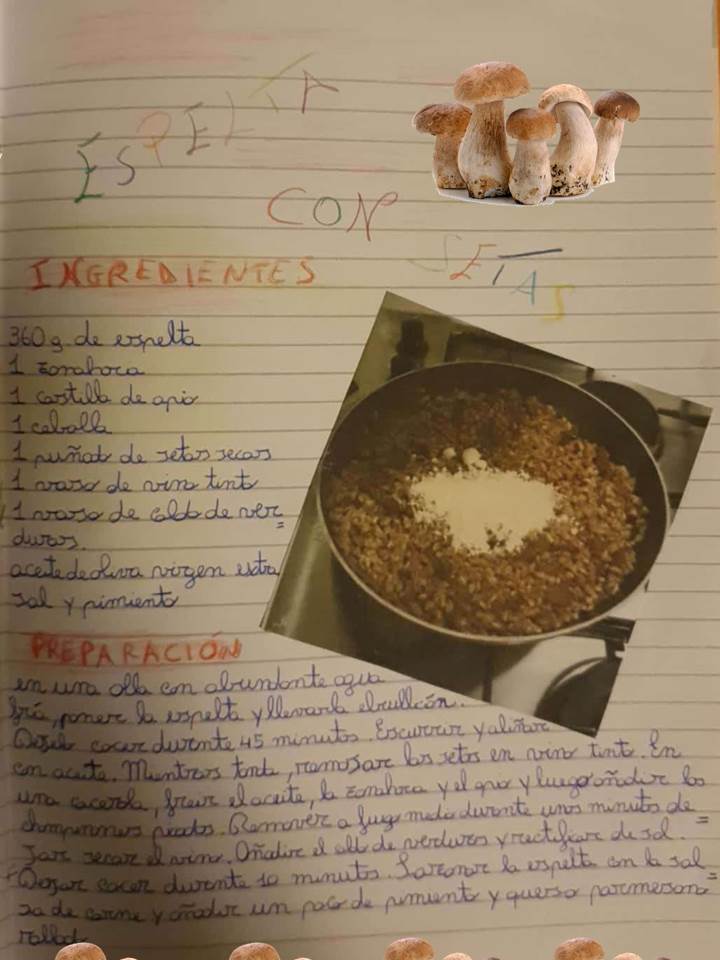 ESPELTA
CON
SETAS
INGREDIENTES
360g de espelta
1 zanahora
1 costilla de apio
1 cebolla
1 puñado de setas secas
1 vaso de vino tinto
1 vaso de caldo de ver=
duras.
aceite de oliva virgen extra
sal y pimiento
PREPARACIÓN
en una olla con abundante agua
fría, poner la espelta y llevarla ebullición.
Dejela cocer durnte 45 minutos. Escurrir y aliñar
con aceite. Mientras tanto, remojar las setas en vino tinto. En
una cacerola, freir el aceite, la zanahora y el apio y luego añadir los
champinnes picados. Remover a fuego medio durante unos minutos de=
jar secar el vino. Añadir el caldo de verduras y rectificar de sal.
Dejar cocer durante 10 minutos. Sazonar la espelta con la sal=
sa de carne y añadir un poco de pimiento y queso parmesano
rallado